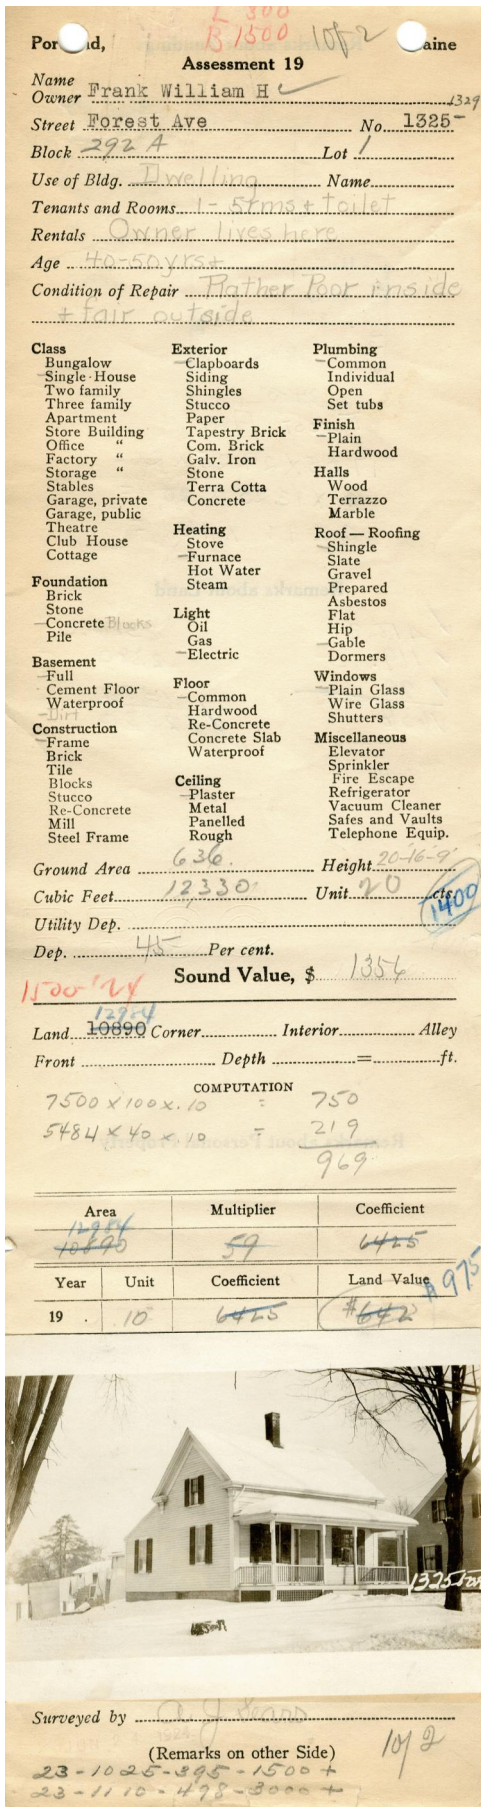 L 800
B 1500 1 of 2
Portland, Maine
Assessment 19
Name
Owner Frank William H
1329
Street Forest Ave No. 1325-
Block 292 A Lot 1
Use of Bldg. Dwelling Name
Tenants and Rooms 1-5 rms + toilet
Rentals Owner lives here
Age 40-50 yrs +
Condition of Repair Rather Poor inside
+ fair outside
Class
Bungalow
Single House
Two family
Three family
Apartment
Store Building
Office "
Factory "
Storage "
Stables
Garage, private
Garage, public
Theatre
Club House
Cottage
Foundation
Brick
Stone
Concrete Blocks
Pile
Basement
Full
Cement Floor
Waterproof
Dirt
Construction
Frame
Brick
Tile
Blocks
Stucco
Re-Concrete
Mill
Steel Frame
Exterior
Clapboards
Siding
Shingles
Stucco
Paper
Tapestry Brick
Com. Brick
Galv. Iron
Stone
Terra Cotta
Concrete
Heating
Stove
Furnace
Hot Water
Steam
Light
Oil
Gas
Electric
Floor
Common
Hardwood
Re-Concrete
Concrete Slab
Waterproof
Ceiling
Plaster
Metal
Panelled
Rough
Plumbing
Common
Individual
Open
Set tubs
Finish
Plain
Hardwood
Halls
Wood
Terrazzo
Marble
Roof — Roofing
Shingle
Slate
Gravel
Prepared
Asbestos
Flat
Hip
Gable
Dormers
Windows
Plain Glass
Wire Glass
Shutters
Miscellaneous
Elevator
Sprinkler
Fire Escape
Refrigerator
Vacuum Cleaner
Safes and Vaults
Telephone Equip.
Ground Area 636. Height 20-16-9
Cubic Feet 12330 Unit 20 cts.
1400
Utility Dep.
Dep. 45 Per cent.
Sound Value, $ 1356
1500-'24
12984
Land 10890 Corner Interior Alley
Front Depth = ft.
COMPUTATION
7500 x 100 x .10 = 750
5484 x 40 x 10 = 219
969
Area Multiplier Coefficient
12984
10890 59 6425
Year Unit Coefficient Land Value
$975
19 . 10 6425 #642
1325 For
Surveyed by
(Remarks on other Side)
1 of 2
23-1025-395-1500+
23-1110-498-3000+